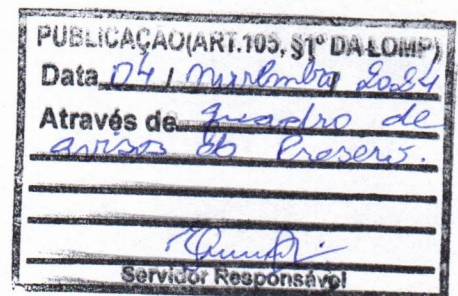 PUBLICAÇÃO(ART.105, §1º DA LOMP)
Data 04 / novembro 2024
Através de quadro de
avisos do
Servidor Responsável